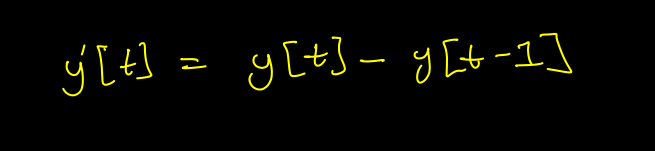 y'[t] = y[t] - y[t-1]